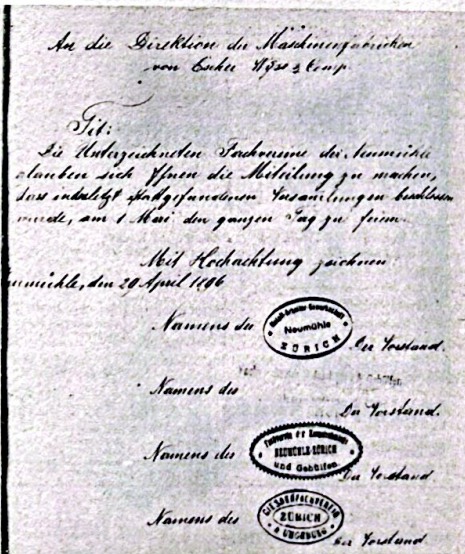 An die Direktion der Maschinenfabriken
von Escher Wyss & Comp.
Tit:
Die Unterzeichneten Fachvereine der Neumühle
glauben sich Ihnen die Mitteilung zu machen,
dass in stattgefundenen Versamlungen beschlossen
wurde, am 1 Mai den ganzen Tag zu feiern.
Mit Hochachtung zeichnen
Neumühle, den 29 April 1896
Namens der
Metall-Arbeiter Gewerkschaft
Neumühle
ZÜRICH
Der Vorstand.
Namens des
Der Vorstand.
Namens des
Fachverein der
NEUMÜHLE-ZÜRICH
und Gehülfen
Der Vorstand
Namens des
GIESSERFACHVEREIN
ZÜRICH
& UMGEBUNG
Der Vorstand